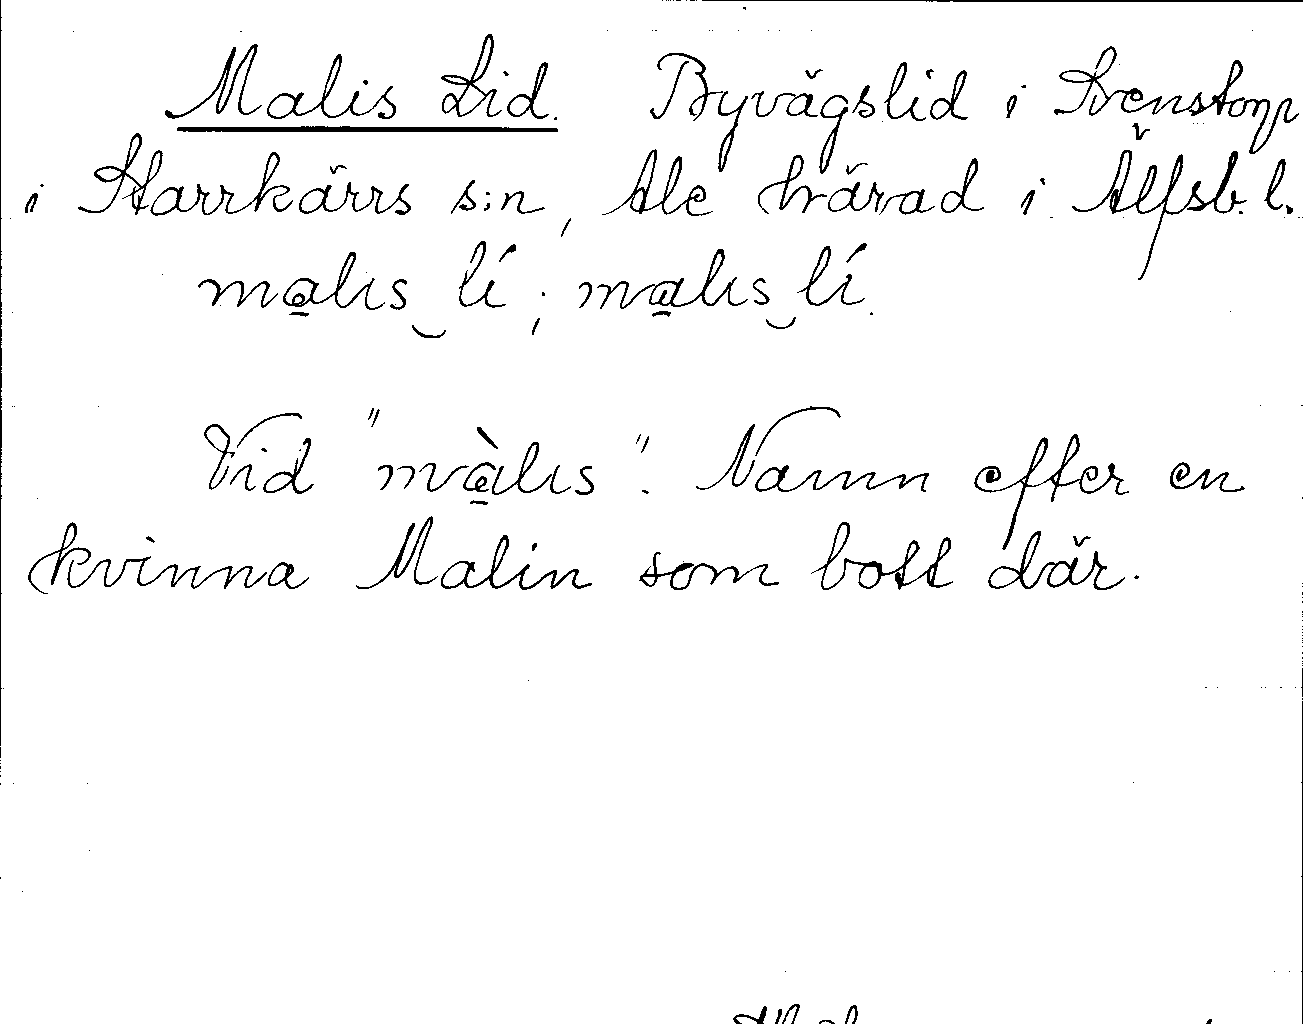 Malis Lid. Byvägslid i Svenstorp
i Starrkärrs s:n, Ale härad i Älfsb. l.
ma̱lıs‿lí; ma̱lıs‿lí.
Vid "mà̱lıs". Namn efter en
kvinna Malin som bott där.